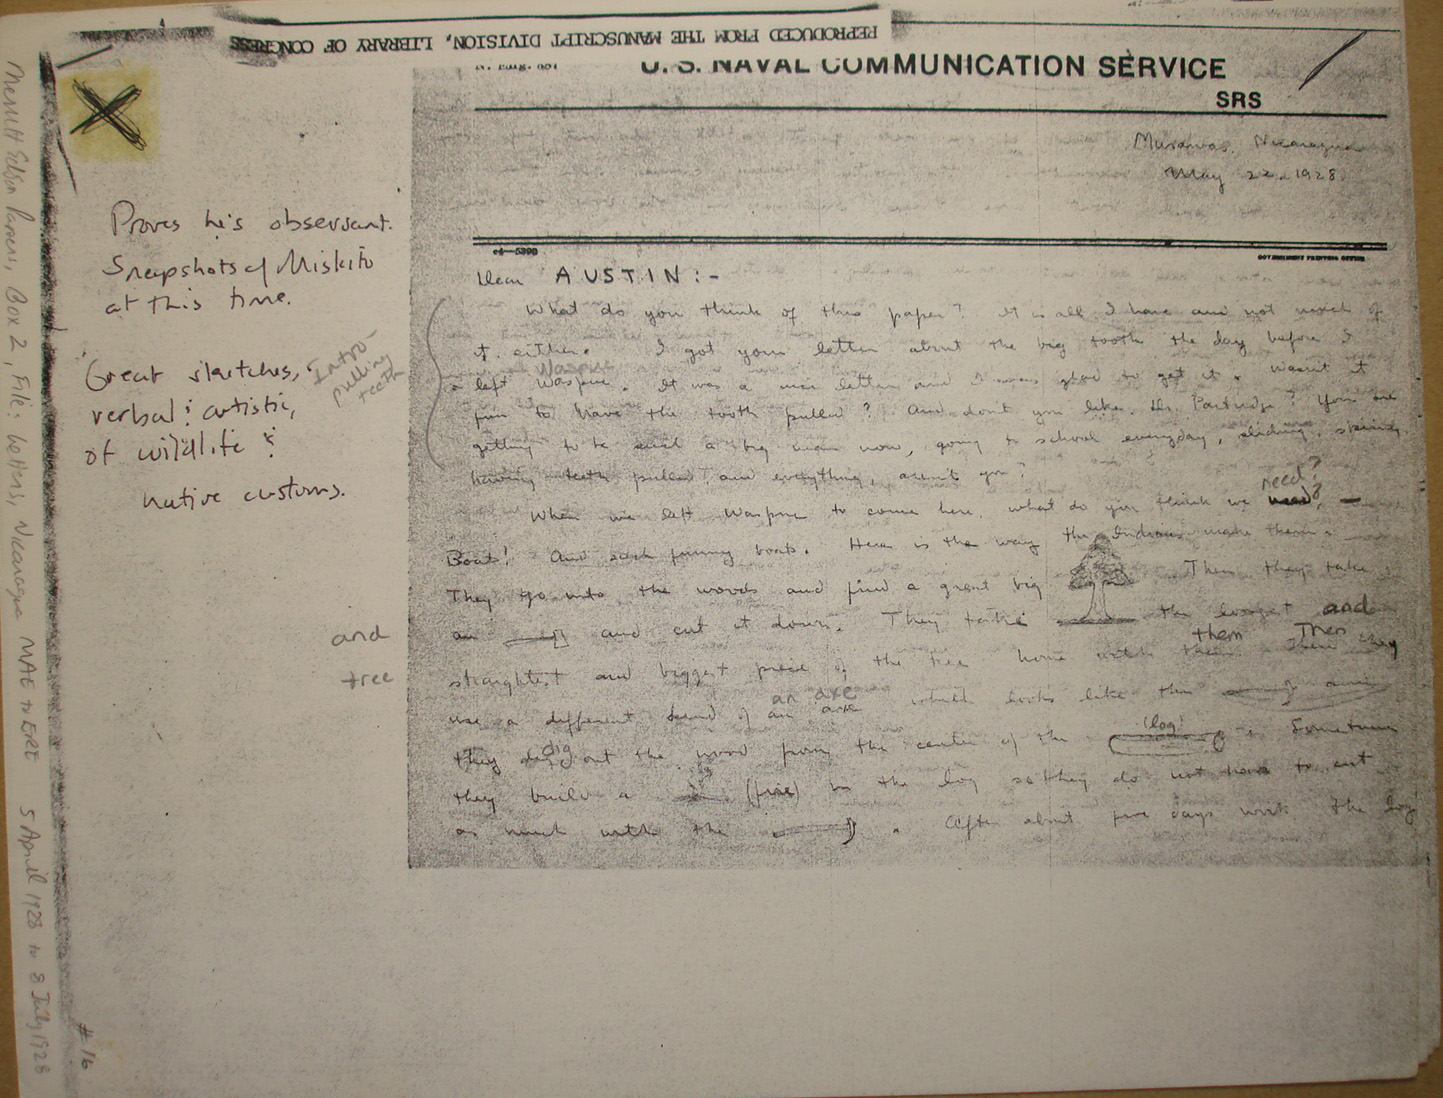 REPRODUCED FROM THE MANUSCRIPT DIVISION, LIBRARY OF CONGRESS
U. S. NAVAL COMMUNICATION SERVICE
SRS
Musawas, Nicaragua
May 22, 1928.
GOVERNMENT PRINTING OFFICE
Dear AUSTIN:-
What do you think of this paper? It is all I have and not much of
it either. I got your letter about the big tooth the day before I
Waspuc
left Waspuc. It was a nice letter and I was glad to get it. Wasn't it
fun to have the tooth pulled? And don't you like Dr. Partridge? You are
getting to be such a big man now, going to school everyday, sliding, skiing,
having teeth pulled, and everything, aren't you?
need?
When we left Waspuc to come here, what do you think we used? —
Boats! And such funny boats. Here is the way the Indians make them:
They go into the woods and find a great big Then they take
an and cut it down. They take the longest and
them Then
straightest and biggest piece of the tree home with them. Then they
an axe
use a different kind of an axe which looks like this and
dig (log)
they dig out the wood from the center of the . Sometimes
they build a (fire) in the log so they do not have to cut
as much with the . After about five days work the log
Proves he's observant.
Snapshots of Miskito
at this time.
Great sketches,
verbal & artistic,
of wildlife &
native customs.
Intro-
pulling
teeth
and
tree
Merritt Edson Papers, Box 2, File: Letters, Nicaragua MAE to ERE 5 April 1928 to 8 July 1928
#16